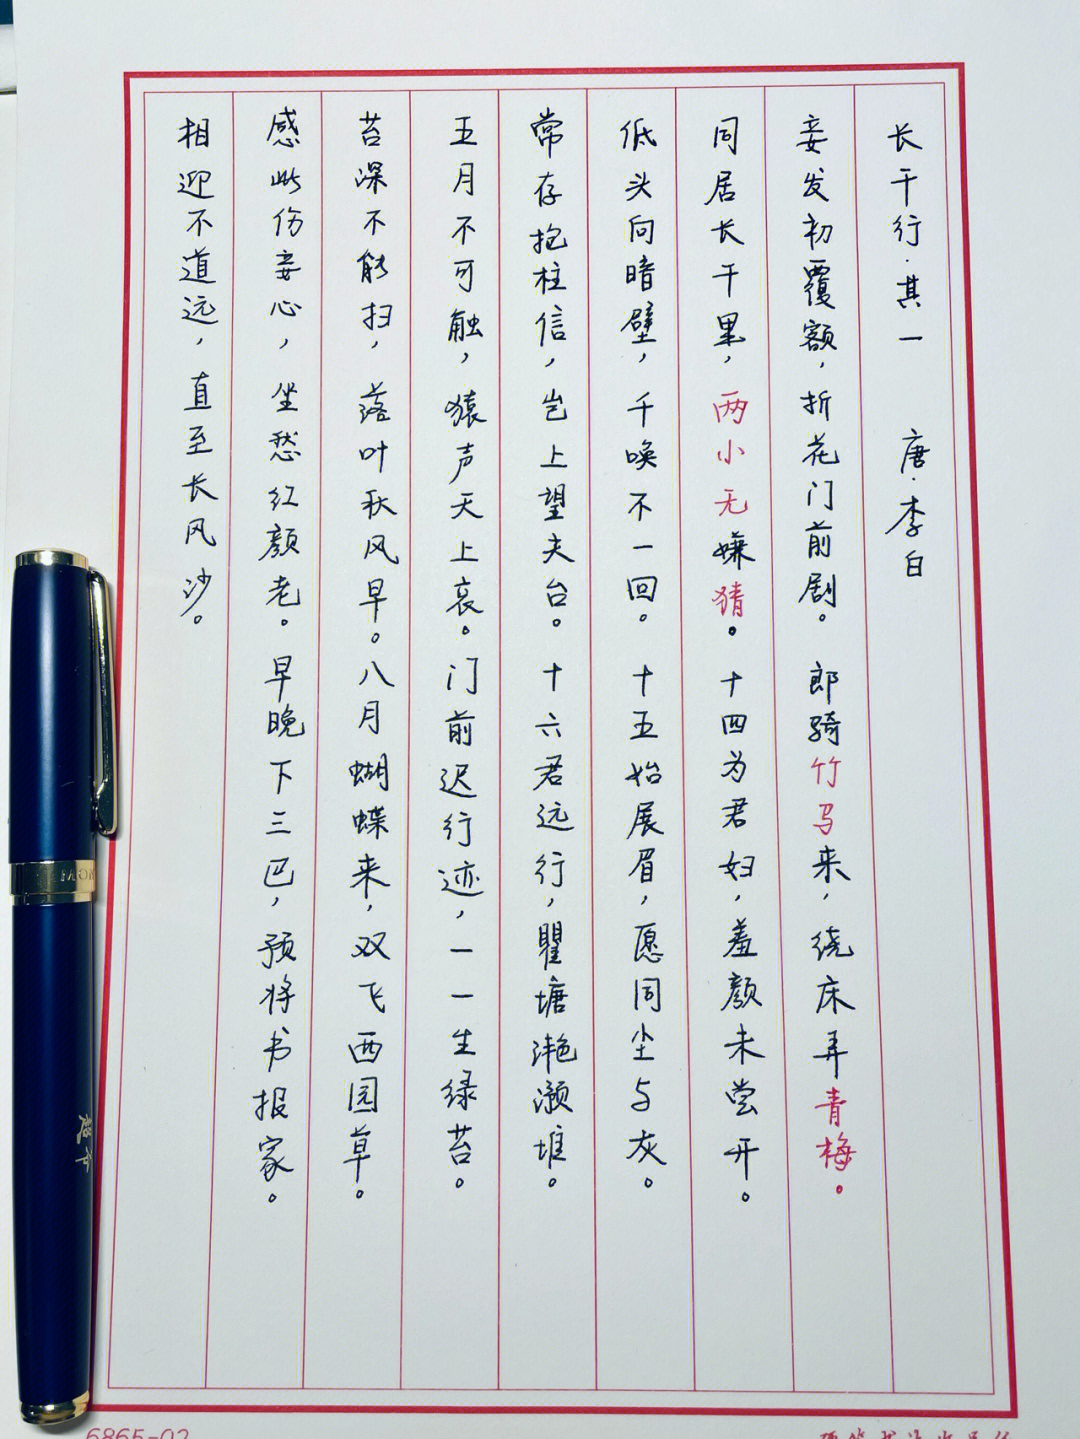 长干行·其一 唐·李白
妾发初覆额，折花门前剧。郎骑竹马来，绕床弄青梅。
同居长干里，两小无嫌猜。十四为君妇，羞颜未尝开。
低头向暗壁，千唤不一回。十五始展眉，愿同尘与灰。
常存抱柱信，岂上望夫台。十六君远行，瞿塘滟滪堆。
五月不可触，猿声天上哀。门前迟行迹，一一生绿苔。
苔深不能扫，落叶秋风早。八月蝴蝶来，双飞西园草。
感此伤妾心，坐愁红颜老。早晚下三巴，预将书报家。
相迎不道远，直至长风沙。
6865-02